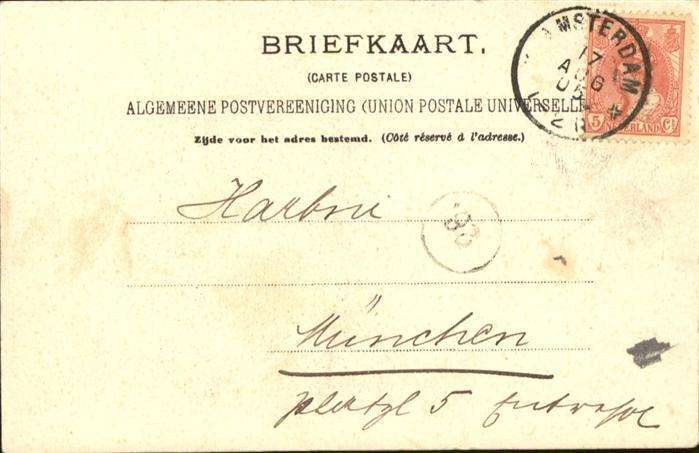 BRIEFKAART.
(CARTE POSTALE)
ALGEMEENE POSTVEREENIGING (UNION POSTALE UNIVERSELLE)
Zijde voor het adres bestemd. (Côté réservé à l'adresse.)
AMSTERDAM
17
AUG
05
5 NEDERLAND Ct
München
5